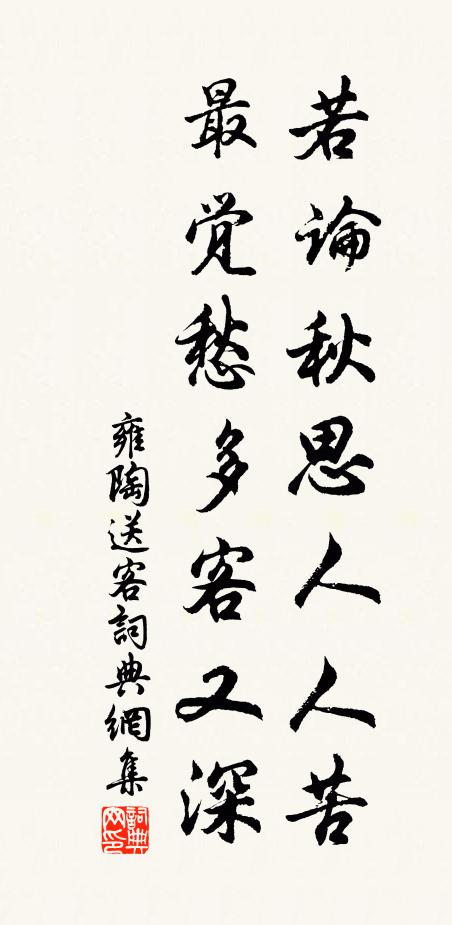 若論秋思人人苦
最觉愁多客又深
雍陶送客詞典網集
詞典
网印